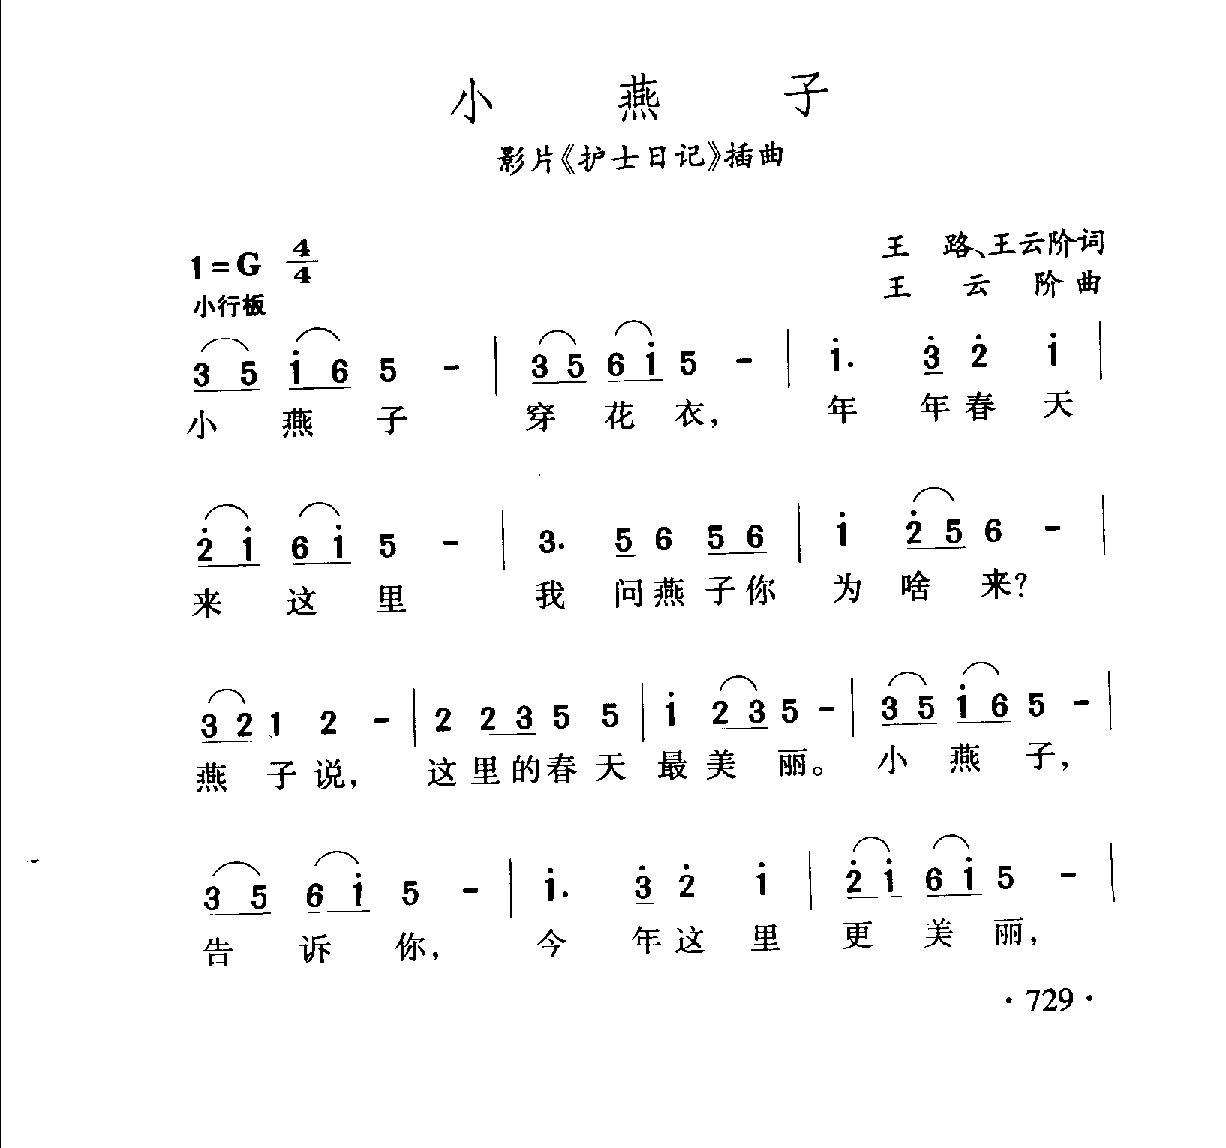 小 燕 子
影片《护士日记》插曲
1=G 4/4
王 路、王云阶词
小行板
王 云 阶 曲
3 5 i 6 5 - | 3 5 6 i 5 - | i. 3̇ 2̇ i |
小 燕 子 穿 花 衣, 年 年 春 天
2̇ i 6 i 5 - | 3. 5 6 5 6 | i 2̇ 5 6 - |
来 这 里 我 问 燕 子 你 为 啥 来?
3 2 1 2 - | 2 2 3 5 5 | i 2 3 5 - | 3 5 i 6 5 - |
燕 子 说, 这 里 的 春 天 最 美 丽。 小 燕 子,
3 5 6 i 5 - | i. 3̇ 2̇ i | 2̇ i 6 i 5 - |
告 诉 你, 今 年 这 里 更 美 丽,
· 729 ·